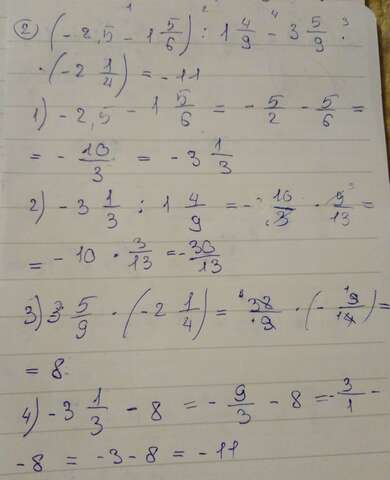 ② (- 2,5 - 1 5/6) : 1 4/9 - 3 5/9 ·
· (- 2 1/4) = - 11
1) - 2,5 - 1 5/6 = - 5/2 - 5/6 =
= - 10/3 = - 3 1/3
2) - 3 1/3 : 1 4/9 = - 10/3 · 9/13 =
= - 10 · 3/13 = - 30/13
3) 3 5/9 · (- 2 1/4) = 32/9 · (- 9/4) =
= 8
4) - 3 1/3 - 8 = - 9/3 - 8 = - 3/1 -
- 8 = - 3 - 8 = - 11